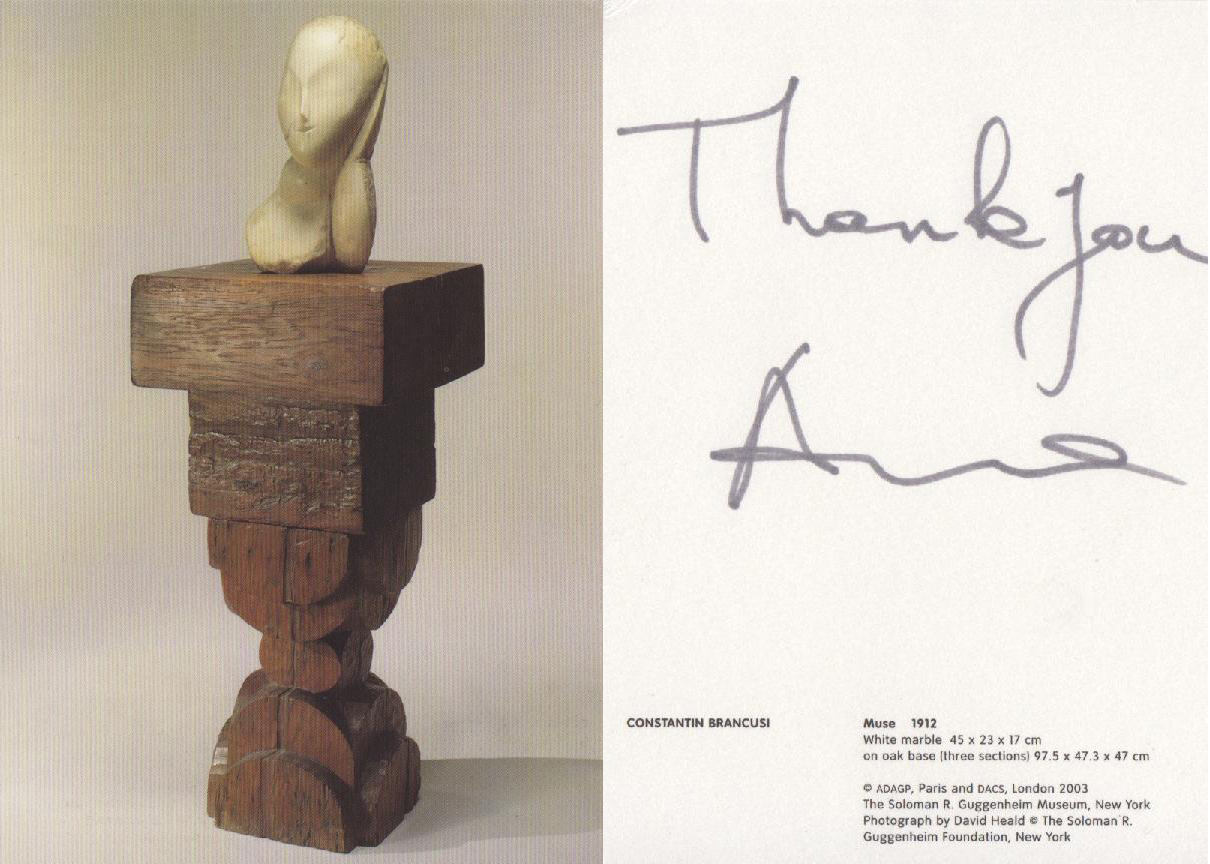 Thank you
Anna
CONSTANTIN BRANCUSI
Muse 1912
White marble 45 x 23 x 17 cm
on oak base (three sections) 97.5 x 47.3 x 47 cm
© ADAGP, Paris and DACS, London 2003
The Soloman R. Guggenheim Museum, New York
Photograph by David Heald © The Soloman R.
Guggenheim Foundation, New York